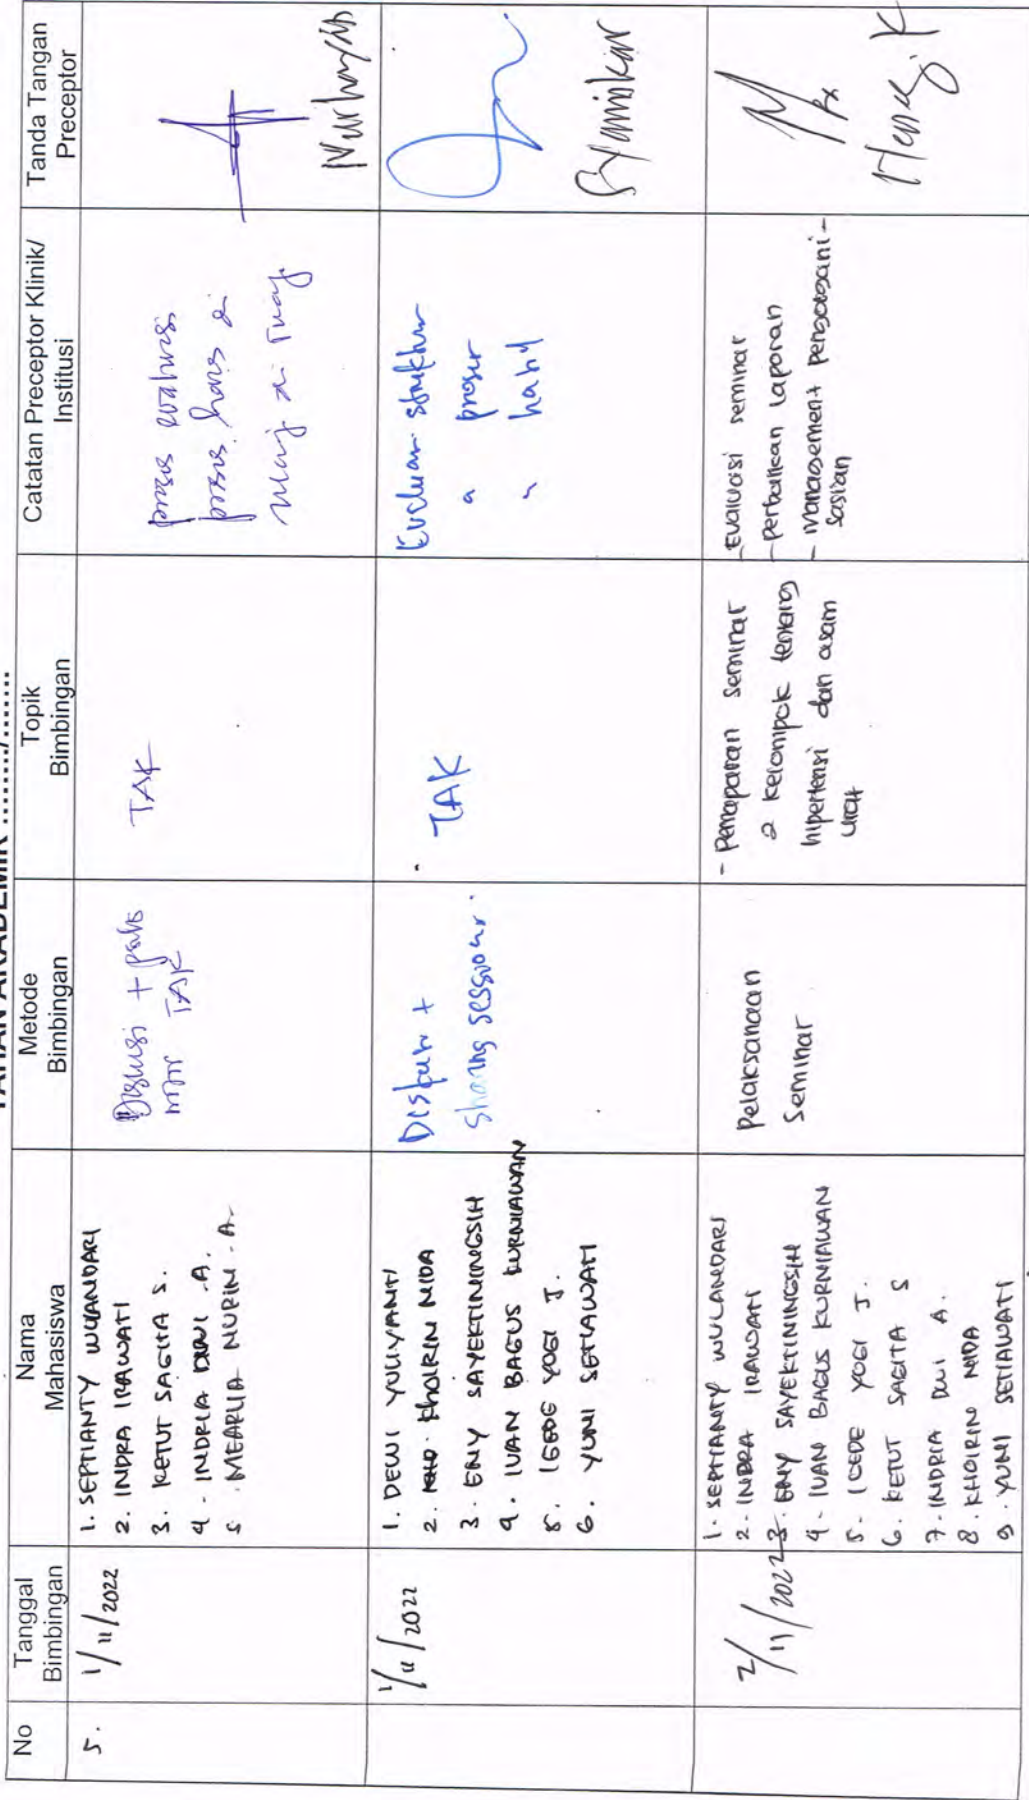 TAHAN AKADEMIK ......../.......
No
Tanggal
Bimbingan
Nama
Mahasiswa
Metode
Bimbingan
Topik
Bimbingan
Catatan Preceptor Klinik/
Institusi
Tanda Tangan
Preceptor
5.
1/11/2022
1. SEPTIANTY WULANDARI
2. INDRA IRAWATI
3. KETUT SAGITA S.
4. INDRIA DWI .A.
5. MEARLIA NURIN .A.
Diskusi +
TAK
TAK
proses evaluasi
proses harus di
di ruang
1/11/2022
1. DEWI YULIYANTI
2. Khoirin NIDA
3. ENY SAYEKTININGSIH
4. IVAN BAGUS KURNIAWAN
5. IGEDE YOGI J.
6. YUNI SETIAWATI
+
Sharing session.
TAK
Evaluasi struktur
" proses
" hasil
2/11/2022
1. SEPTIANTY WULANDARI
2. INDRA IRAWATI
3. ENY SAYEKTININGSIH
4. IVAN BAGUS KURNIAWAN
5. IGEDE YOGI J.
6. KETUT SAGITA S
7. INDRIA DWI A.
8. KHOIRIN NIDA
9. YUNI SETIAWATI
Pelaksanaan
Seminar
- Pemaparan seminar
2 kelompok tentang
hipertensi dan asam
urat
- Evaluasi seminar
- perbaikan laporan
- Management pengorgani-
sasian